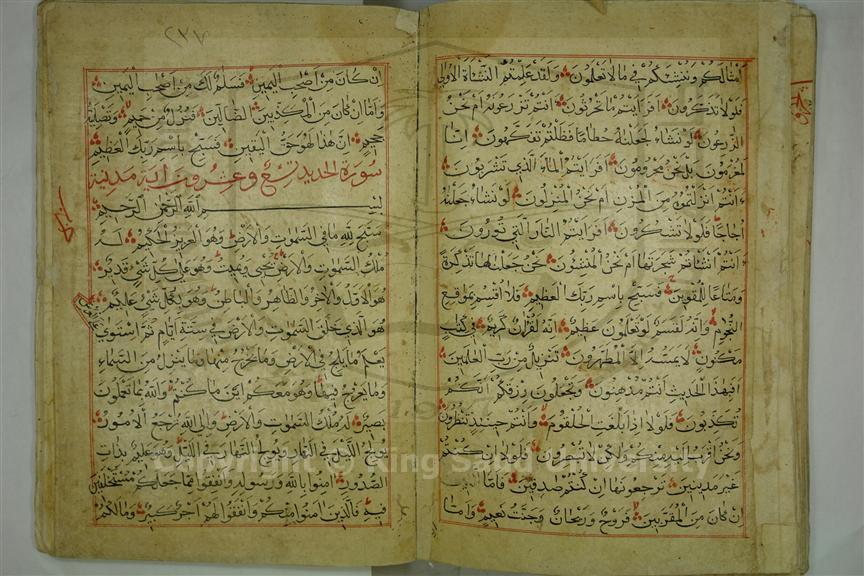 امثالكم وننشئكم في ما لا تعلمون ولقد علمتم النشاة الاولى
فلولا تذكرون افرايتم ما تحرثون ءانتم تزرعونه ام نحن
الزارعون لو نشاء لجعلنه حطاما فظلتم تفكهون انا
لمغرمون بل نحن محرومون افرايتم الماء الذي تشربون
ءانتم انزلتموه من المزن ام نحن المنزلون لو نشاء جعلناه
اجاجا فلولا تشكرون افرايتم النار التي تورون
ءانتم انشاتم شجرتها ام نحن المنشئون نحن جعلناها تذكرة
ومتاعا للمقوين فسبح باسم ربك العظيم فلا اقسم بمواقع
النجوم وانه لقسم لو تعلمون عظيم انه لقران كريم في كتاب
مكنون لا يمسه الا المطهرون تنزيل من رب العلمين
افبهذا الحديث انتم مدهنون وتجعلون رزقكم انكم
تكذبون فلولا اذا بلغت الحلقوم وانتم حينئذ تنظرون
ونحن اقرب اليه منكم ولكن لا تبصرون فلولا ان كنتم
غير مدينين ترجعونها ان كنتم صدقين فاما
ان كان من المقربين فروح وريحان وجنت نعيم واما
٢٣٧
ان كان من اصحب اليمين فسلم لك من اصحب اليمين
واما ان كان من المكذبين الضالين فنزل من حميم وتصلية
جحيم ان هذا لهو حق اليقين فسبح باسم ربك العظيم
سورة الحديد تسع وعشرون اية مدينة
بسم الله الرحمن الرحيم
سبح لله ما في السموت والارض وهو العزيز الحكيم له
ملك السموت والارض يحيي ويميت وهو على كل شيء قدير
هو الاول والاخر والظاهر والباطن وهو بكل شيء عليم
هو الذي خلق السموت والارض في ستة ايام ثم استوى
يعلم ما يلج في الارض وما يخرج منها وما ينزل من السماء
وما يعرج فيها وهو معكم اين ما كنتم والله بما تعملون
بصير له ملك السموت والارض والى الله ترجع الامور
يولج الليل في النهار ويولج النهار في الليل وهو عليم بذات
الصدور امنوا بالله ورسوله وانفقوا مما جعلكم مستخلفين
فيه فالذين امنوا منكم وانفقوا لهم اجر كبير وما لكم
Copyright © King Saud University